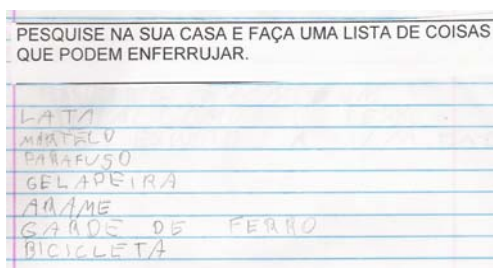 PESQUISE NA SUA CASA E FAÇA UMA LISTA DE COISAS
QUE PODEM ENFERRUJAR.
LATA
MARTELO
PARAFUSO
GELADEIRA
ARAME
GARDE DE FERRO
BICICLETA